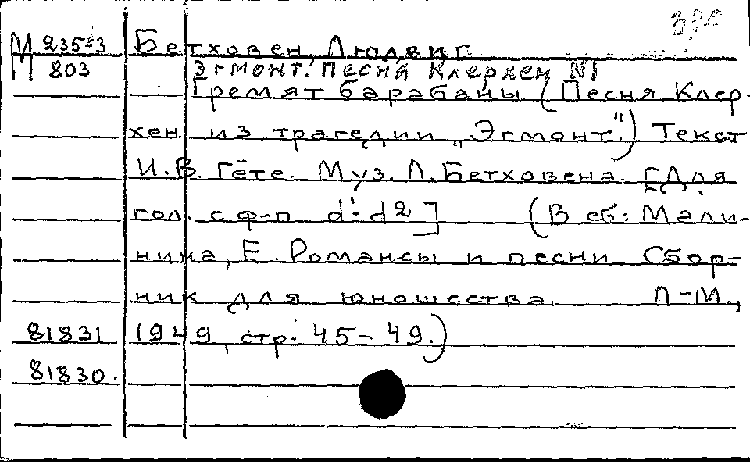 М 235-3 Бетховен, Людвиг
803 Эгмонт. Песня Клерхен №1
Гремят барабаны (Песня Клер-
хен из трагедии "Эгмонт".) Текст
И.В. Гёте. Муз. Л. Бетховена. [Для
гол. с ф-п d'-d2] (В сб: Мали-
нина, Е. Романсы и песни. Сбор-
ник для юношества. Л-М.,
81831 1949, стр. 45-49.)
81830.